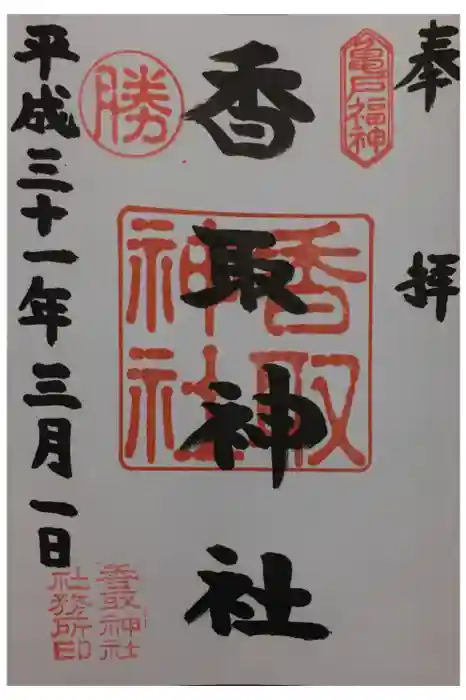 奉拝
亀戸福神
香取神社
香取
神社
勝
平成三十一年三月一日
香取神社
社務所印